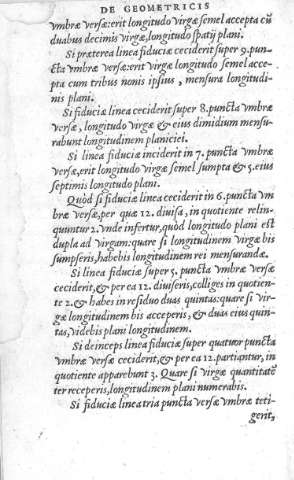 DE GEOMETRICIS
vmbræ versæ: erit longitudo virgæ semel accepta cũ
duabus decimis virgæ, longitudo spatij plani.
Si præterea linea fiduciæ ceciderit super 9. pun-
cta vmbræ versæ: erit virgæ longitudo semel acce-
pta cum tribus nonis ipsius, mensura longitudi-
nis plani.
Si fiduciæ linea ceciderit super 8. puncta vmbræ
versæ, longitudo virgæ & eius dimidium mensu-
rabunt longitudinem planiciei.
Si linea fiduciæ inciderit in 7. puncta vmbræ
versæ, erit longitudo virgæ semel sumpta & 5. eius
septimis longitudo plani.
Quòd si fiduciæ linea ceciderit in 6. puncta vm
bræ versæ, per quæ 12. diuisa, in quotiente relin-
quuntur 2. vnde infertur, quòd longitudo plani est
dupla ad virgam: quare si longitudinem virgæ bis
sumpseris, habebis longitudinem rei mensurandæ.
Si linea fiduciæ super 5. puncta vmbræ versæ
ceciderit, & per ea 12. diuiseris, colliges in quotien-
te 2. & habes in residuo duas quintas: quare si vir-
gæ longitudinem bis acceperis, & duas eius quin-
tas, videbis plani longitudinem.
Si deinceps linea fiduciæ super quatuor puncta
vmbræ versæ ceciderit, & per ea 12. partiantur, in
quotiente apparebunt 3. Quare si virgæ quantitatē
ter receperis, longitudinem plani numerabis.
Si fiduciæ linea tria puncta versæ vmbræ teti-
gerit,